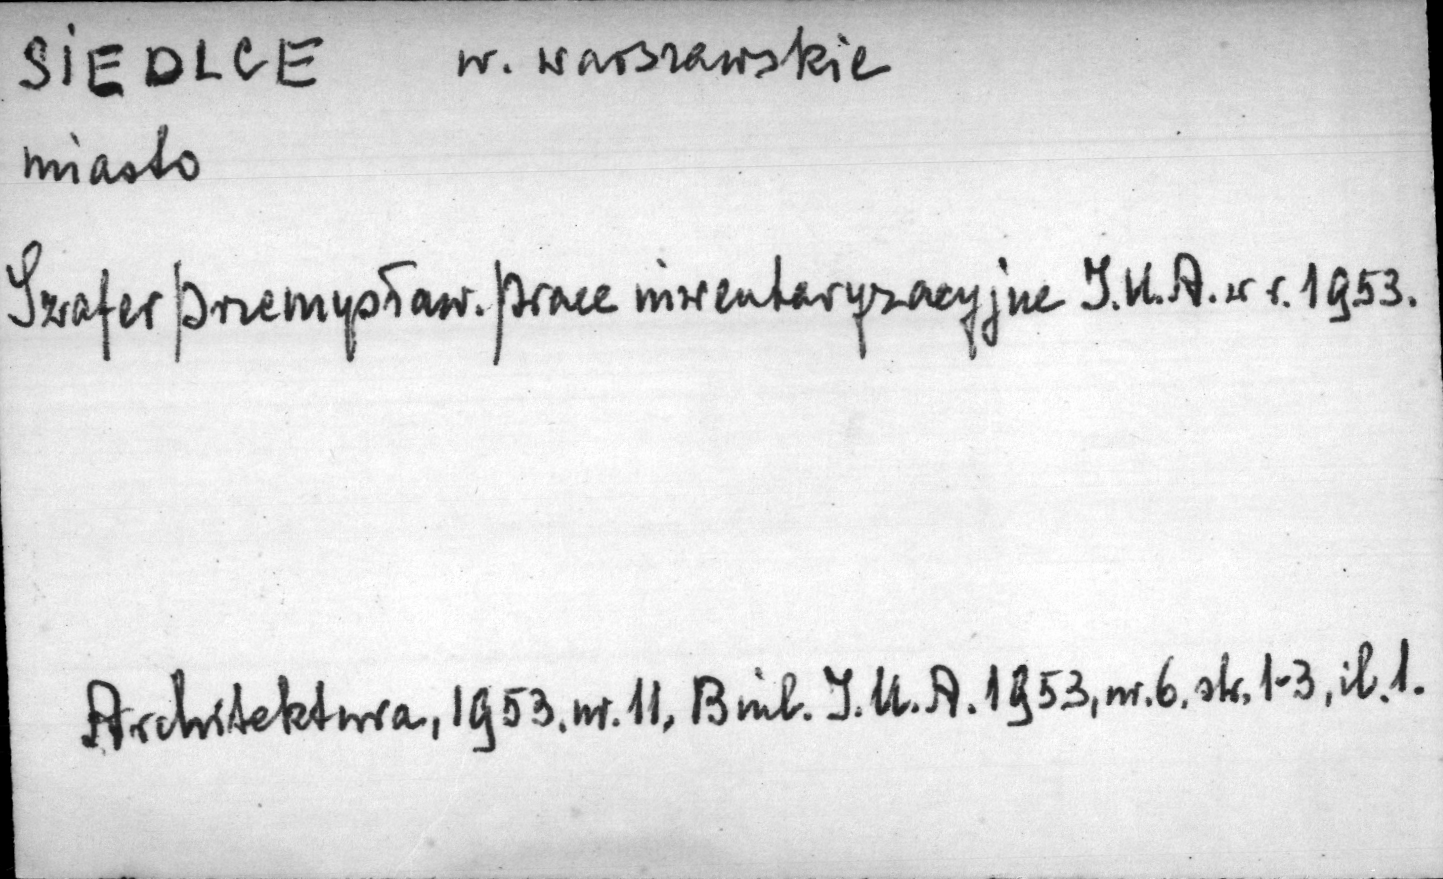 SIEDLCE w. warszawskie
miasto
Szafer Przemysław. Prace inwentaryzacyjne I.U.A. w r. 1953.
Architektura, 1953. nr. 11, Biul. I.U.A. 1953, nr. 6. str. 1-3, il. 1.